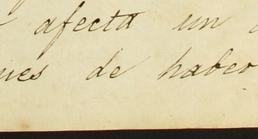 afecta un
ues de haber